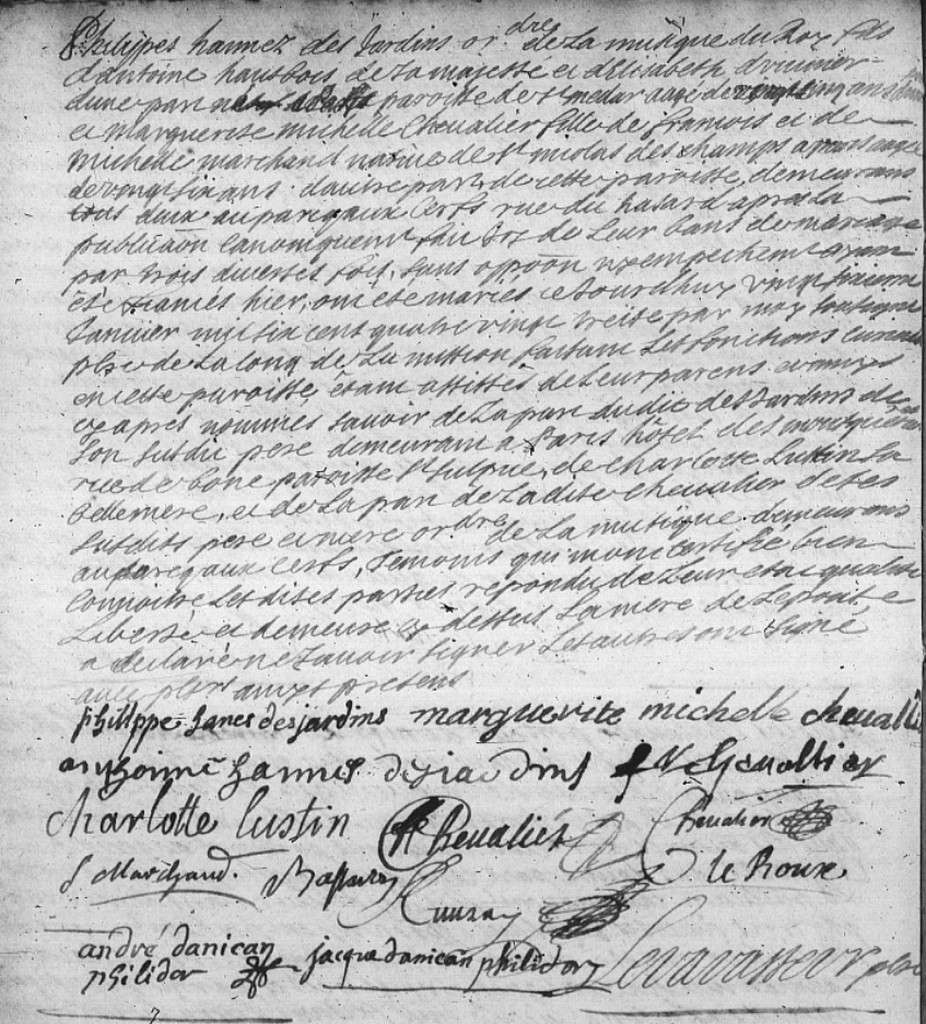 Philippes hannez des Jardins or^dre de La musique du Roy fils
d'antoine hautbois de sa majesté et d'Elisabeth drumier
dune part paroisse de s^t medar aagé de vingt cinq ans
et Marguerite michelle Chevalier fille de francois et de
Michelle marchand native de s^t nicolas des champs a paris aagée
de vingt six ans dautre part de cette paroisse, demeurans
tous deux au parcq aux Cerfs rue du hasard apres la
publicãon Canoniquem^t faite de Leur bans de mariage
par trois diverses fois, sans oppõon ny empechem^t ayant
été fiancés hier, ont été mariés ce Jourdhuy vingt
Janvier mil six cent quatre vingt treize par moy soussigné
p^bre de La Cong. de La mission faisant Les fonctions curiales
en cette paroisse, étant assistés de Leurs parens et amys
cy apres nommés savoir de La part dudit des Jardins de
son susdit pere demeurant a Paris hôtel des mousquetaires
rue de bone paroisse s^t sulpice, de charlotte Lustin sa
bellemere, et de La part de Ladite Chevalier de ses
susdits pere et mere or^dre de La musique demeurans
au parcq aux Cerfs, temoins qui m'ont certifié bien
Connoitre Lesdites parties repondu de Leur etat qualité
Liberté et demeure cy dessus La mere de Lepouse
a declaré ne savoir signer Les autres ont signé
avec plus^rs amys presens
philippe hanes desjardins marguerite michelle chevallier
anthoinne hannes desjardins Chevallier
Charlotte Lustin Chevalier Chevalier
Marchand. le Roux
andré danican
philidor jacque danican philidor Levavasseur pbre